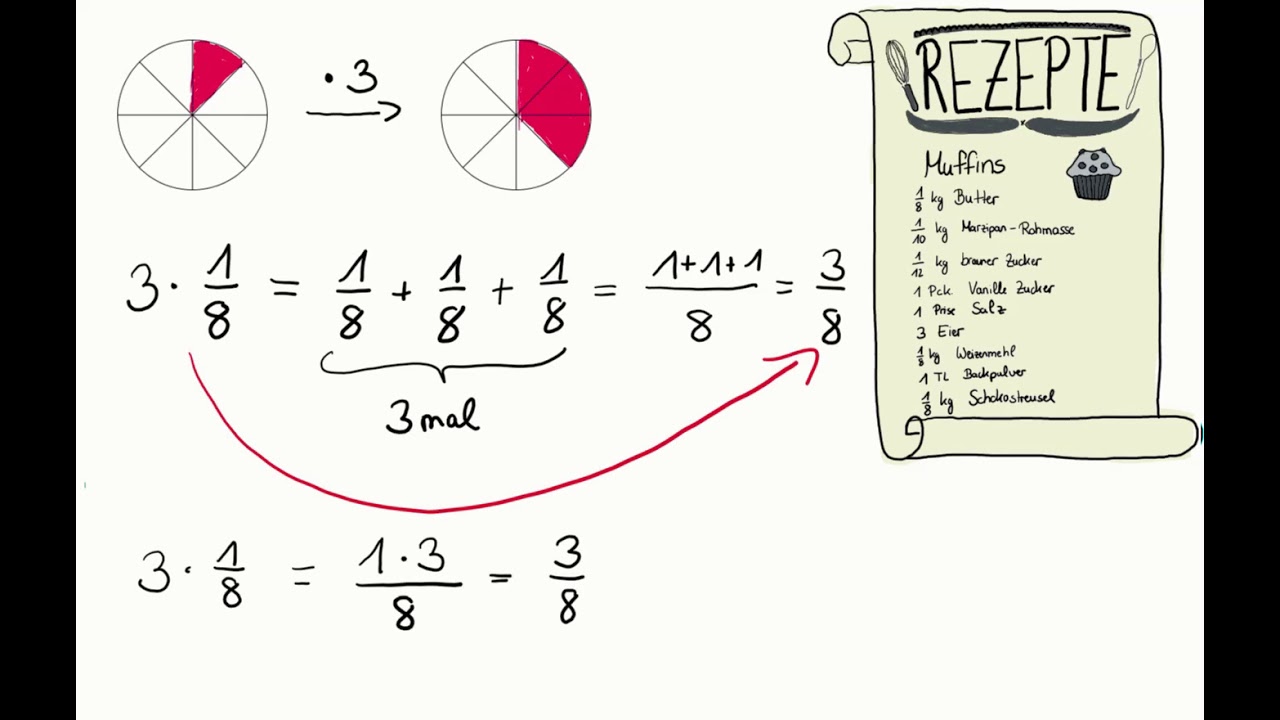 · 3
3 · 1/8 = 1/8 + 1/8 + 1/8 = 1+1+1/8 = 3/8
3 mal
3 · 1/8 = 1 · 3/8 = 3/8
REZEPTE
Muffins
1/8 kg Butter
1/10 kg Marzipan-Rohmasse
1/12 kg brauner Zucker
1 Pck. Vanille Zucker
1 Prise Salz
3 Eier
1/8 kg Weizenmehl
1 TL Backpulver
1/8 kg Schokostreusel